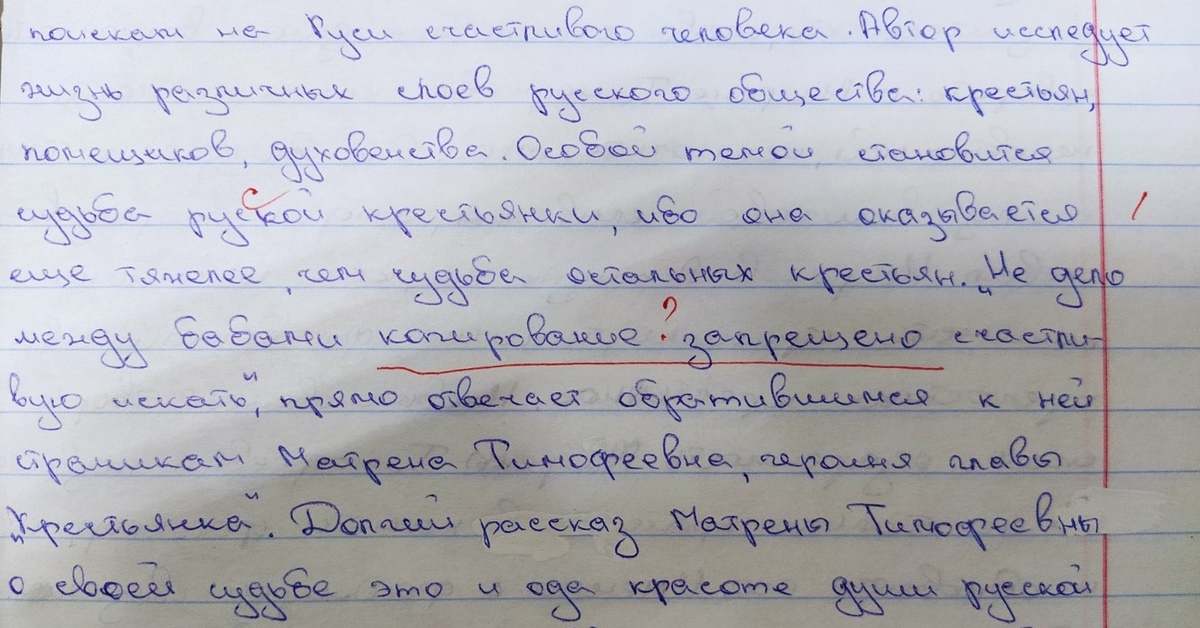 поискам на Руси счастливого человека. Автор исследует
жизнь различных слоев русского общества: крестьян,
помещиков, духовенства. Особой темой становится
судьба руской крестьянки, ибо она оказывается
еще тяжелее, чем судьба остальных крестьян. „Не дело
между бабами копирование ? запрещено счастли-
вую искать", прямо отвечает обратившимся к ней
странникам Матрена Тимофеевна, героиня главы
„Крестьянка". Долгий рассказ Матрены Тимофеевны
о своей судьбе это и ода красоте души русской